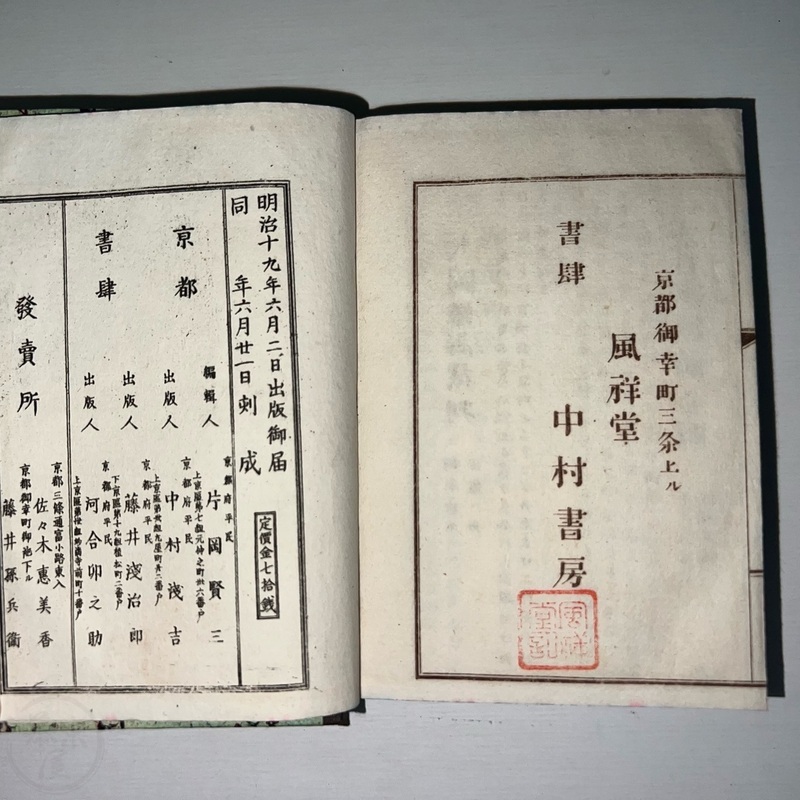 京都御幸町三条上ル
風祥堂
書肆 中村書房
風祥堂記
明治十九年六月二日出版御届
同 年六月廿一日刻成
定價金七拾錢
京都
書肆
京都府平民
編輯人 片岡賢三
上京區第七組元仲之町卅六番戶
京都府平民
出版人 中村淺吉
京都府平民
出版人 藤井淺治郎
下京區第十九組植松町二番戶
京都府平民
出版人 河合卯之助
發賣所
京都三條通富小路東入
佐々木惠美香
京都御幸町御池下ル
藤井孫兵衞